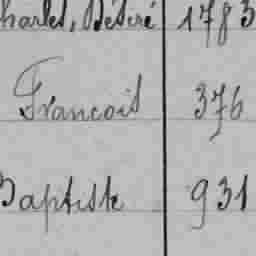 Charles, Désiré 1783
François 376
Baptiste 931